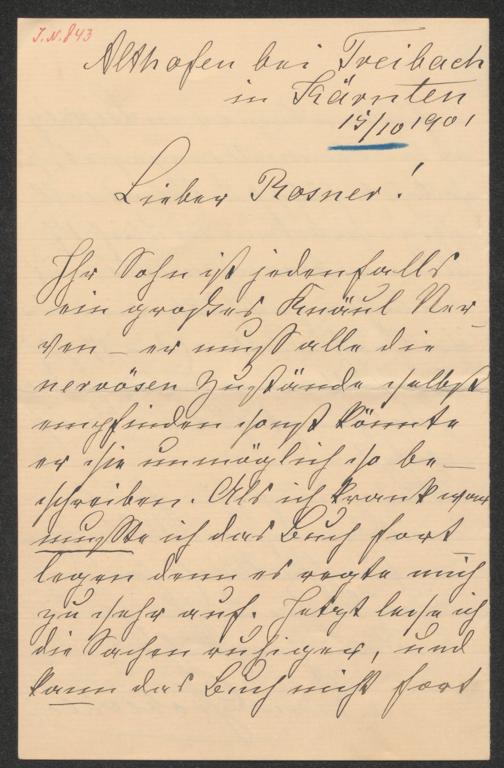 I.N. 843
Althofen bei Treibach
in Kärnten
15/10 1901
Lieber Rosner!
Ihr Sohn ist jedenfalls
ein großes Knäul Ner-
ven – er muss alle die
nervösen Zustände selbst
empfinden sonst könnte
er sie unmöglich so be-
schreiben. Als ich krank war
musste ich das Buch fort-
legen denn es regte mich
zu sehr auf. Jetzt lese ich
die Sachen ruhiger, und
kann das Buch nicht fort